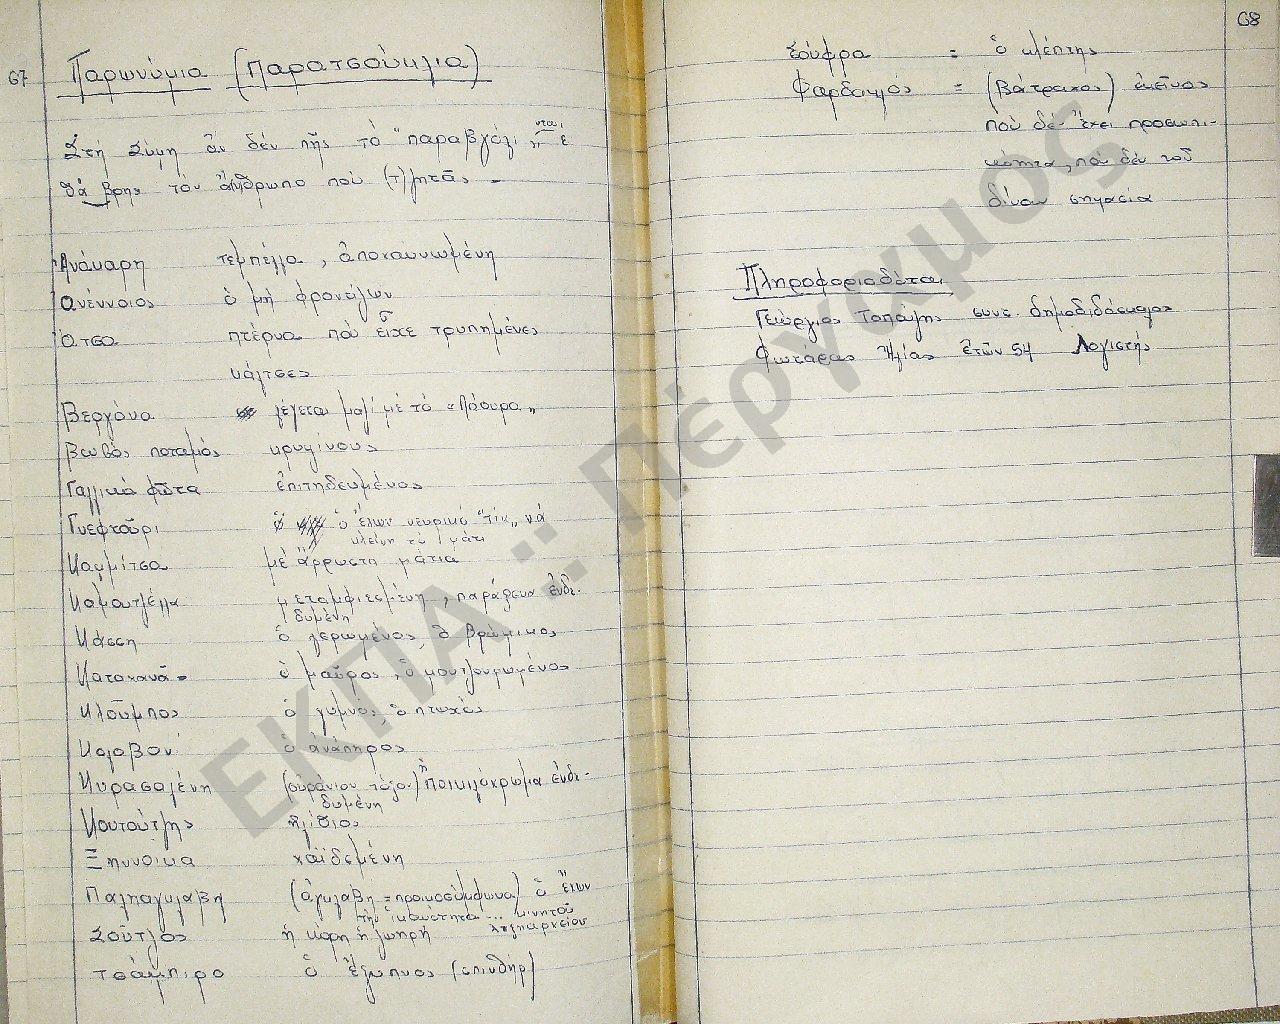 67
Παρωνύμια (Παρατσούκλια)
Στη Σύμη ἄν δέν πῆς τό "παραβγόλι „
θά βρης τόν ἄνθρωπο πού (τ)ζητᾶς -
Ἀνάναρη τεμπέλλα, ἀποχαυνωμένη
Ἀνέννοιος ὁ μή φροντίζων
Ἄτσα πτέρνα πού εἶχε τρυπημένες
κάλτσες
Βεργόνα λέγεται μαζί μέ τό "Πάουρα„
Βουβός ποταμός κρυψίνους
Γαλλικά φῶτα ἐπιτηδευμένος
Γνεφτοῦρι ὁ ἔχων νευρικό "τίκ„ νά
κλείνη τό μάτι
Καμμίτσα μέ ἄρρωστη μάτια
Καμουζέλλα μεταμφιεσμένη, παράξενα ἐνδε-
δυμένη
Κάσση ὁ λερωμένος, ὁ βρώμικος
Καταχανᾶς ὁ μαῦρος, ὁ μουτζουρωμένος
Κλοῦμπος ὁ γυμνός, ὁ πτωχός
Κολοβού ὁ ἀνάπηρος
Κυρασολένη (οὐράνιου τόξο) ἡ ποικιλόχρωμα ἐνδε-
δυμένη
Κουτούτζης ἠλίθιος
Ξηννοίκα χαϊδεμένη
Παληαγκλαβῆ (ἀγκλαβῆ = προικοσύμφωνα) ὁ ἔχων
τήν ἰκανότητα ... κινητοῦ
ληξιαρχείου
Σούτζος ἡ κόρη ἡ ζωηρή
Τσάμπιρο ὁ ἔξυπνος (σπινθήρ)
68
Σούφρα = ὁ κλέπτης
Φαρδακλός = (βάτραχος) ἐκεῖνος
πού δέν ἔχει προσωπι-
κότητα, πού δέν τοῦ
δίνουν σημασία
Πληροφοριοδόται
Γεώργιος Τσπάκης συντ. δημοδιδάσκαλος
Φωτάρας Ηλίας ἐτῶν 54 Λογιστής
ΕΚΠΑ :: Πέργαμος